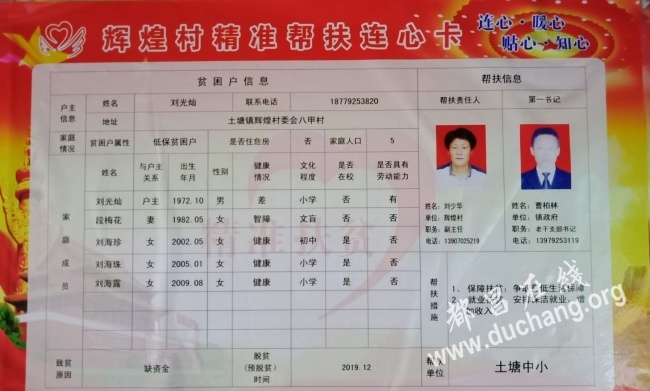 辉煌村精准帮扶连心卡
连心·暖心
贴心·知心
贫困户信息 帮扶信息
户主信息 姓名 刘光灿 联系电话 18779253820 帮扶责任人 第一书记
地址 土塘镇辉煌村委会八甲村
家庭情况 贫困户属性 低保贫困户 是否住危房 否 家庭人口 5
家庭成员 姓名 与户主关系 出生年月 性别 健康情况 文化程度 是否在校 是否具有劳动能力
刘光灿 户主 1972.10 男 差 小学 否 有
段梅花 妻 1982.05 女 智障 文盲 否 否
刘海珍 女 2002.05 女 健康 初中 是 否
刘海珠 女 2005.01 女 健康 小学 是 否
刘海露 女 2009.08 女 健康 小学 是 否
精准扶贫
姓名:刘少华 姓名:曹柏林
单位:辉煌村 单位:镇政府
职务:副主任 职务:老干支部书记
电话:13907025219 电话:13979253119
帮扶措施
1、保障扶贫:争取低生活保障
就业 安排保洁就业,增
加收入
致贫原因 缺资金 脱贫(预脱贫)时间 2019.12 帮 单位 土塘中小
都昌在线
www.duchang.org